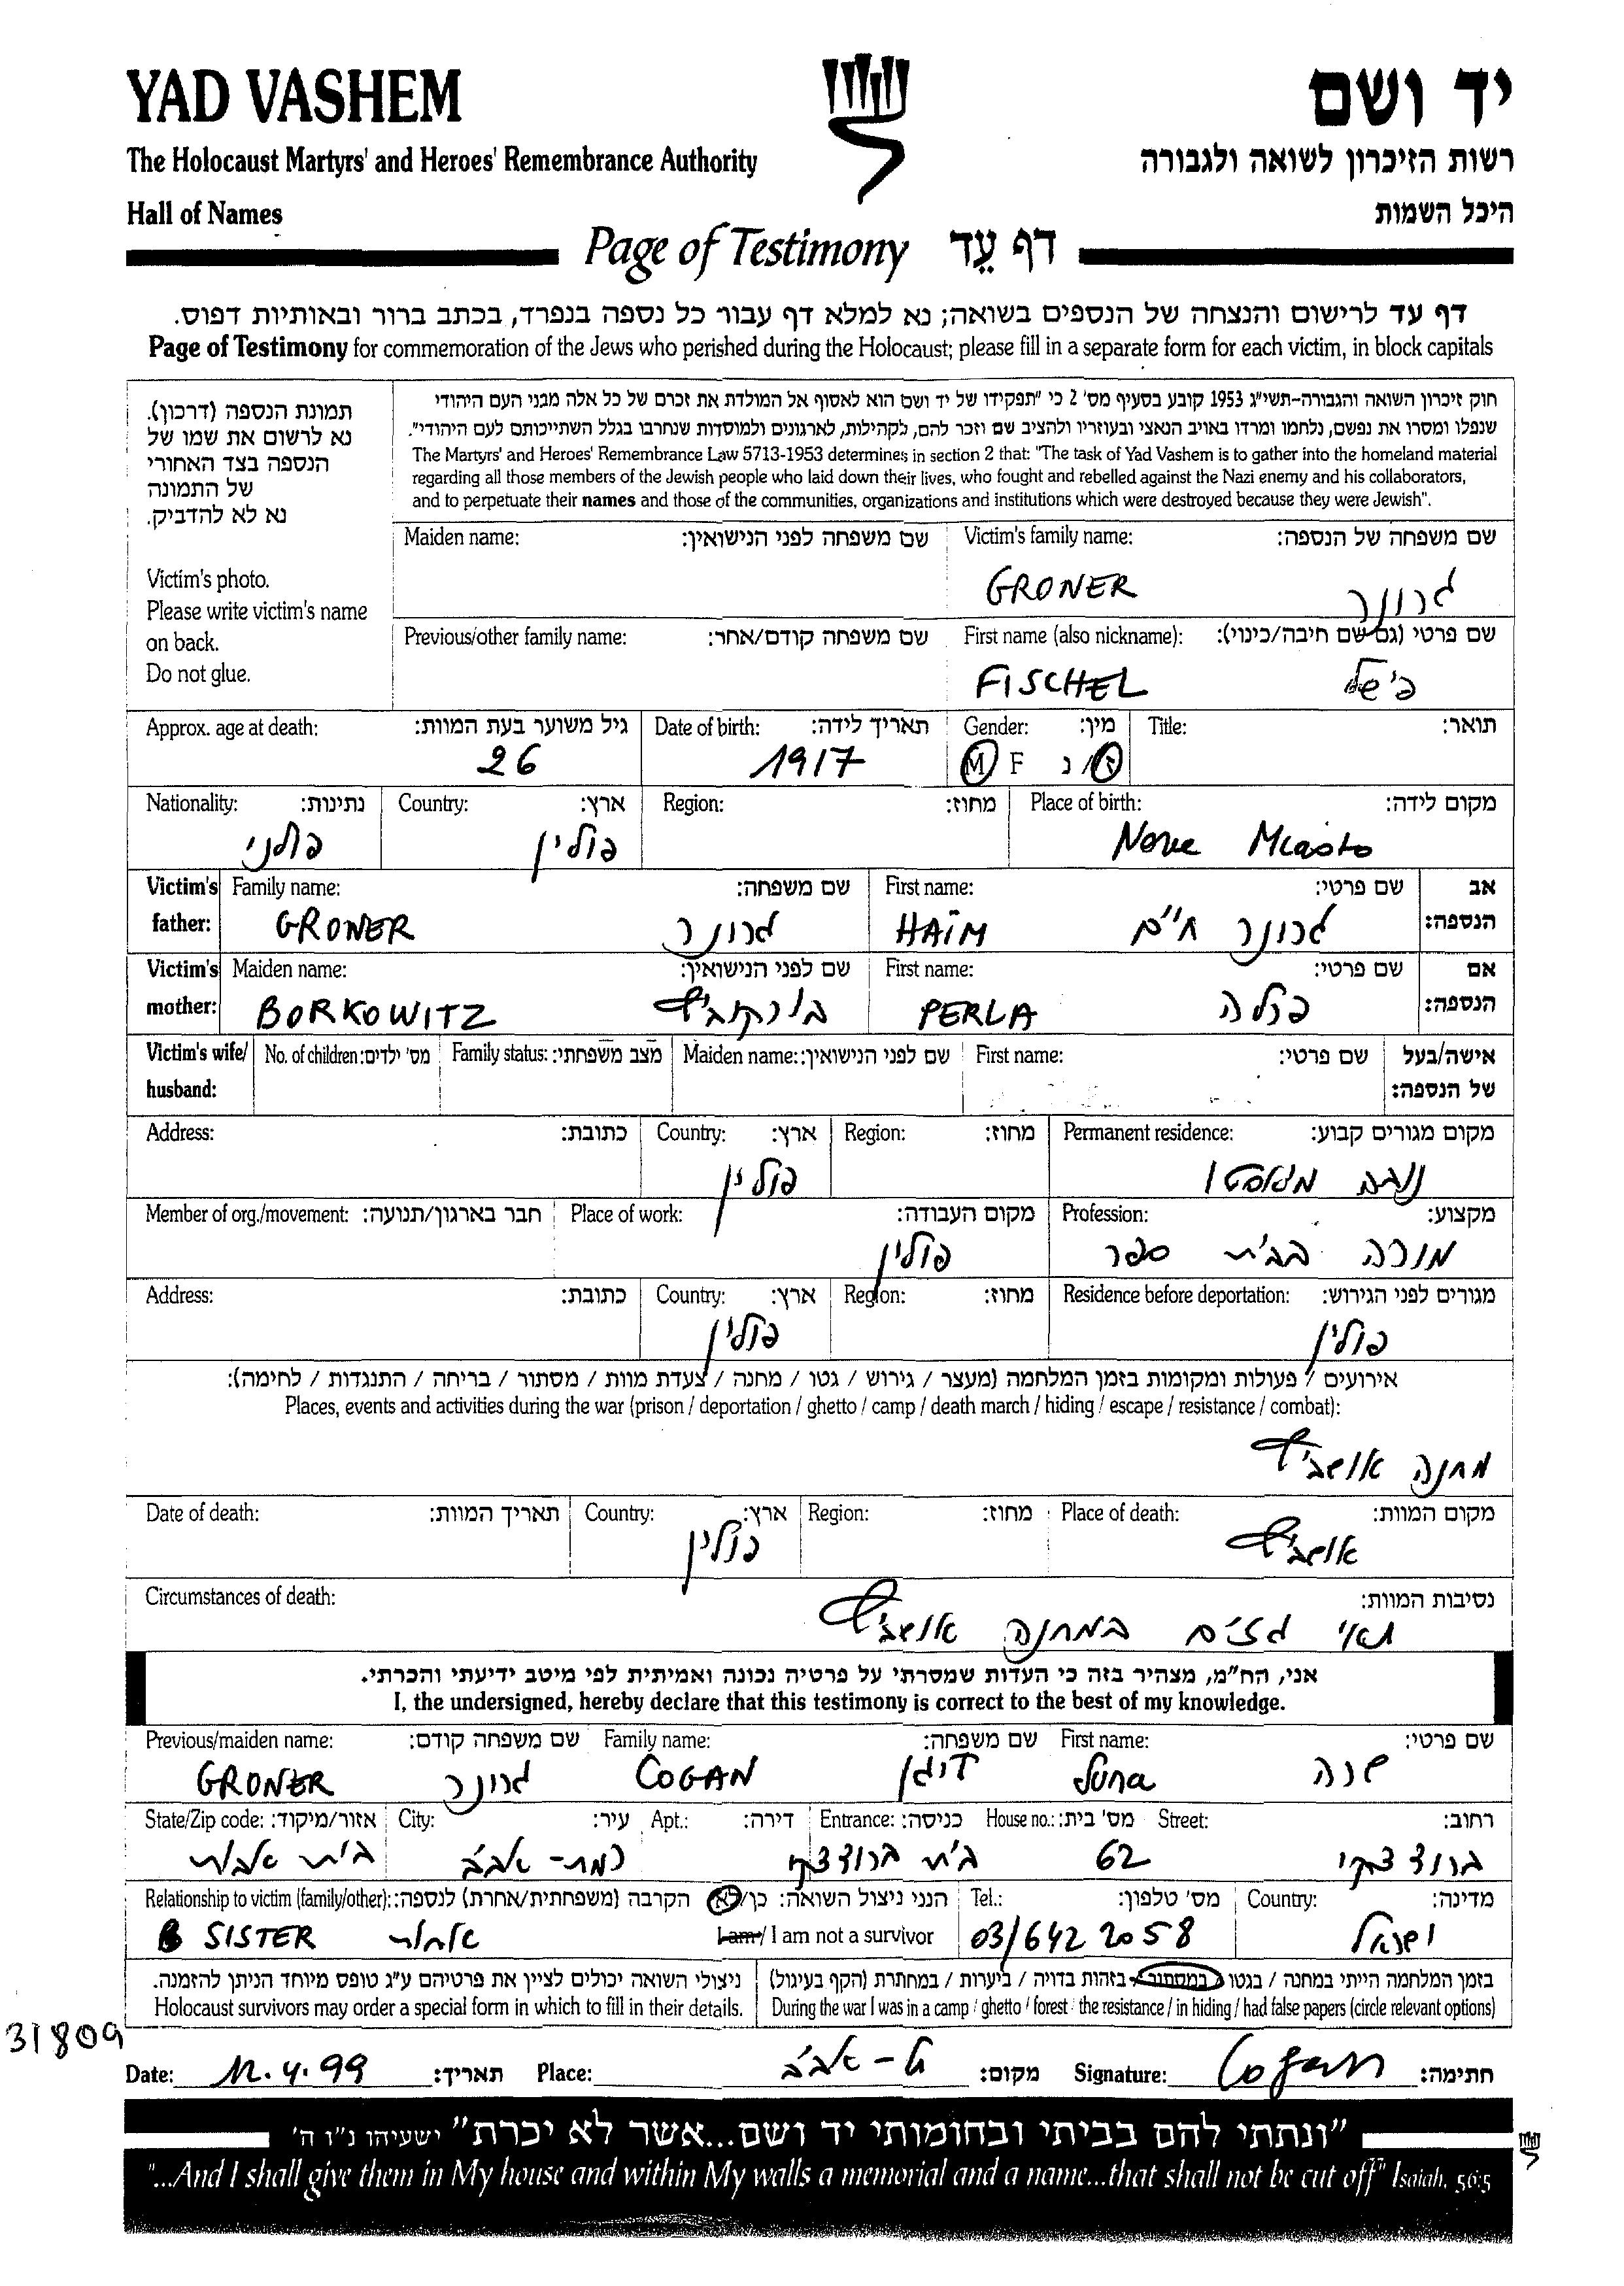 YAD VASHEM
יד ושם
The Holocaust Martyrs' and Heroes' Remembrance Authority
רשות הזיכרון לשואה ולגבורה
Hall of Names
היכל השמות
Page of Testimony דף עֵד
דף עד לרישום והנצחה של הנספים בשואה; נא למלא דף עבור כל נספה בנפרד, בכתב ברור ובאותיות דפוס.
Page of Testimony for commemoration of the Jews who perished during the Holocaust; please fill in a separate form for each victim, in block capitals
תמונת הנספה (דרכון).
נא לרשום את שמו של
הנספה בצד האחורי
של התמונה
נא לא להדביק.
Victim's photo.
Please write victim's name
on back.
Do not glue.
חוק זיכרון השואה והגבורה-תשי"ג 1953 קובע בסעיף מס' 2 כי "תפקידו של יד ושם הוא לאסוף אל המולדת את זכרם של כל אלה מבני העם היהודי
שנפלו ומסרו את נפשם, נלחמו ומרדו באויב הנאצי ובעוזריו ולהציב שם וזכר להם, לקהילות, לארגונים ולמוסדות שנחרבו בגלל השתייכותם לעם היהודי".
The Martyrs' and Heroes' Remembrance Law 5713-1953 determines in section 2 that: "The task of Yad Vashem is to gather into the homeland material
regarding all those members of the Jewish people who laid down their lives, who fought and rebelled against the Nazi enemy and his collaborators,
and to perpetuate their names and those of the communities, organizations and institutions which were destroyed because they were Jewish".
Maiden name: שם משפחה לפני הנישואין: Victim's family name: שם משפחה של הנספה:
GRONER גרונר
Previous/other family name: שם משפחה קודם/אחר: First name (also nickname): שם פרטי (גם שם חיבה/כינוי):
FISCHEL פישל
Approx. age at death: גיל משוער בעת המוות: Date of birth: תאריך לידה: Gender: מין: Title: תואר:
26 1917 M F ז/נ
Nationality: נתינות: Country: ארץ: Region: מחוז: Place of birth: מקום לידה:
פולני פולין Nove Miasto
Victim's father: Family name: שם משפחה: First name: שם פרטי: אב הנספה:
GRONER גרונר HAÏM גרונר חיים
Victim's mother: Maiden name: שם לפני הנישואין: First name: שם פרטי: אם הנספה:
BORKOWITZ בורקוביץ PERLA פרלה
Victim's wife/ husband: No. of children: מס' ילדים: Family status: מצב משפחתי: Maiden name: שם לפני הנישואין: First name: שם פרטי: אישה/בעל של הנספה:
Address: כתובת: Country: ארץ: Region: מחוז: Permanent residence: מקום מגורים קבוע:
פולין
Member of org./movement: חבר בארגון/תנועה: Place of work: מקום העבודה: Profession: מקצוע:
פולין מורה בבית ספר
Address: כתובת: Country: ארץ: Region: מחוז: Residence before deportation: מגורים לפני הגירוש:
פולין פולין
אירועים / פעולות ומקומות בזמן המלחמה (מעצר / גירוש / גטו / מחנה / צעדת מוות / מסתור / בריחה / התנגדות / לחימה):
Places, events and activities during the war (prison / deportation / ghetto / camp / death march / hiding / escape / resistance / combat):
מחנה אושביץ
Date of death: תאריך המוות: Country: ארץ: Region: מחוז: Place of death: מקום המוות:
פולין אושביץ
Circumstances of death: נסיבות המוות:
תאי גזים במחנה אושביץ
אני, הח"מ, מצהיר בזה כי העדות שמסרתי על פרטיה נכונה ואמיתית לפי מיטב ידיעתי והכרתי.
I, the undersigned, hereby declare that this testimony is correct to the best of my knowledge.
Previous/maiden name: שם משפחה קודם: Family name: שם משפחה: First name: שם פרטי:
GRONER גרונר COGAN Suna שנה
State/Zip code: אזור/מיקוד: City: עיר: Apt.: דירה: Entrance: כניסה: House no.: מס' בית: Street: רחוב:
בית אבות רמת-אביב בית ברודצקי 62 ברודצקי
Relationship to victim (family/other): הקרבה (משפחתית/אחרת) לנספה: הנני ניצול השואה: כן/לא Tel.: מס' טלפון: Country: מדינה:
SISTER אחות I am/ I am not a survivor 03/642 2058 ישראל
ניצולי השואה יכולים לציין את פרטיהם ע"ג טופס מיוחד הניתן להזמנה. בזמן המלחמה הייתי במחנה / בגטו / במסתור / בזהות בדויה / ביערות / במחתרת (הקף בעיגול)
Holocaust survivors may order a special form in which to fill in their details. During the war I was in a camp / ghetto / forest / the resistance / in hiding / had false papers (circle relevant options)
31809
Date: 12.4.99 תאריך: Place: ת-אביב מקום: Signature: Cogan חתימה:
"ונתתי להם בביתי ובחומותי יד ושם...אשר לא יכרת" ישעיהו נ"ו ה'
"...And I shall give them in My house and within My walls a memorial and a name...that shall not be cut off" Isaiah, 56:5